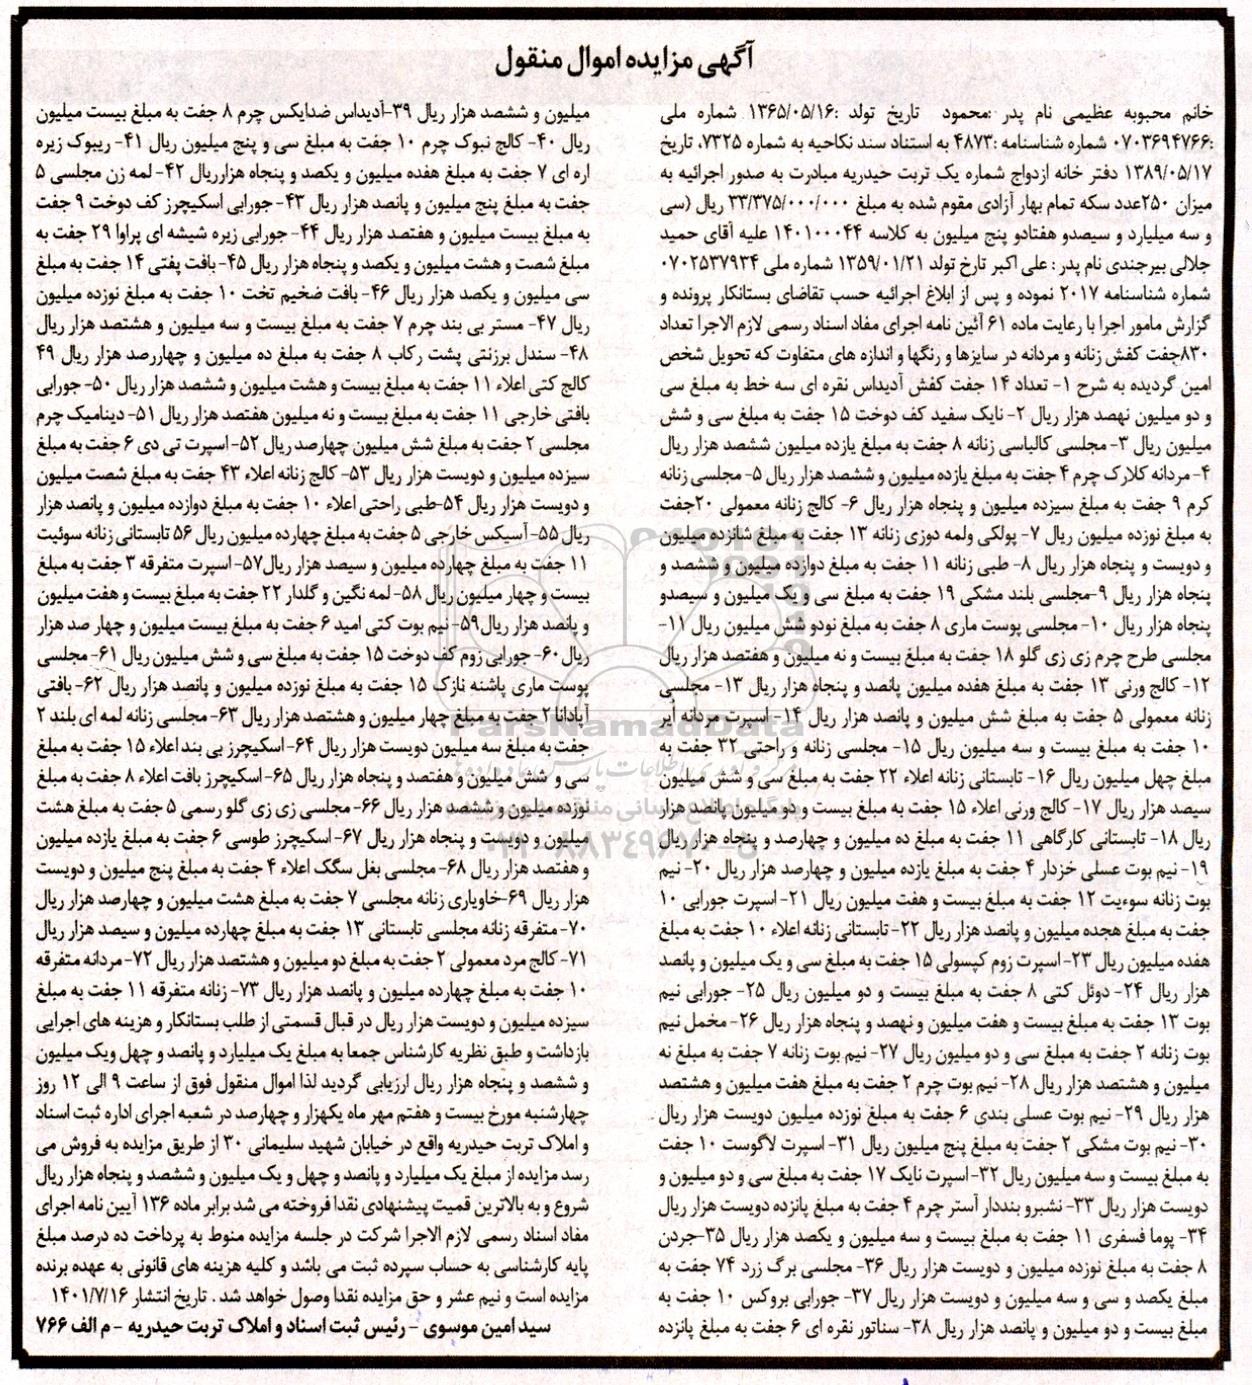 آگهی مزایده اموال منقول
خانم محبوبه عظیمی نام پدر :محمود تاریخ تولد :۱۳۶۵/۰۵/۱۶ شماره ملی
:۰۷۰۳۶۹۴۷۶۶ شماره شناسنامه :۴۸۷۳ به استناد سند نکاحیه به شماره ۷۳۲۵، تاریخ
۱۳۸۹/۰۵/۱۷ دفتر خانه ازدواج شماره یک تربت حیدریه مبادرت به صدور اجرائیه به
میزان ۲۵۰عدد سکه تمام بهار آزادی مقوم شده به مبلغ ۳۳/۳۷۵/۰۰۰/۰۰۰ ریال (سی
و سه میلیارد و سیصدو هفتادو پنج میلیون به کلاسه ۱۴۰۱۰۰۰۴۴ علیه آقای حمید
جلالی بیرجندی نام پدر : علی اکبر تارخ تولد ۱۳۵۹/۰۱/۲۱ شماره ملی ۰۷۰۲۵۳۷۹۳۴
شماره شناسنامه ۲۰۱۷ نموده و پس از ابلاغ اجرائیه حسب تقاضای بستانکار پرونده و
گزارش مامور اجرا با رعایت ماده ۶۱ آئین نامه اجرای مفاد اسناد رسمی لازم الاجرا تعداد
۸۳۰جفت کفش زنانه و مردانه در سایزها و رنگها و اندازه های متفاوت که تحویل شخص
امین گردیده به شرح ۱- تعداد ۱۴ جفت کفش آدیداس نقره ای سه خط به مبلغ سی
و دو میلیون نهصد هزار ریال ۲- نایک سفید کف دوخت ۱۵ جفت به مبلغ سی و شش
میلیون ریال ۳- مجلسی کالباسی زنانه ۸ جفت به مبلغ یازده میلیون ششصد هزار ریال
۴- مردانه کلارک چرم ۴ جفت به مبلغ یازده میلیون و ششصد هزار ریال ۵- مجلسی زنانه
کرم ۹ جفت به مبلغ سیزده میلیون و پنجاه هزار ریال ۶- کالج زنانه معمولی ۲۰جفت
به مبلغ نوزده میلیون ریال ۷- پولکی ولمه دوزی زنانه ۱۳ جفت به مبلغ شانزده میلیون
و دویست و پنجاه هزار ریال ۸- طبی زنانه ۱۱ جفت به مبلغ دوازده میلیون و ششصد و
پنجاه هزار ریال ۹-مجلسی بلند مشکی ۱۹ جفت به مبلغ سی و یک میلیون و سیصدو
پنجاه هزار ریال ۱۰- مجلسی پوست ماری ۸ جفت به مبلغ نودو شش میلیون ریال ۱۱-
مجلسی طرح چرم زی زی گلو ۱۸ جفت به مبلغ بیست و نه میلیون و هفتصد هزار ریال
۱۲- کالج ورنی ۱۳ جفت به مبلغ هفده میلیون پانصد و پنجاه هزار ریال ۱۳- مجلسی
زنانه معمولی ۵ جفت به مبلغ شش میلیون و پانصد هزار ریال ۱۴- اسپرت مردانه آیر
۱۰ جفت به مبلغ بیست و سه میلیون ریال ۱۵- مجلسی زنانه و راحتی ۳۲ جفت به
مبلغ چهل میلیون ریال ۱۶- تابستانی زنانه اعلاء ۲۲ جفت به مبلغ سی و شش میلیون
سیصد هزار ریال ۱۷- کالج ورنی اعلاء ۱۵ جفت به مبلغ بیست و دو میلیون پانصد هزار
ریال ۱۸- تابستانی کارگاهی ۱۱ جفت به مبلغ ده میلیون و چهارصد و پنجاه هزار ریال
۱۹- نیم بوت عسلی خزدار ۴ جفت به مبلغ یازده میلیون و چهارصد هزار ریال ۲۰- نیم
بوت زنانه سوءیت ۱۲ جفت به مبلغ بیست و هفت میلیون ریال ۲۱- اسپرت جورابی ۱۰
جفت به مبلغ هجده میلیون و پانصد هزار ریال ۲۲- تابستانی زنانه اعلاء ۱۰ جفت به مبلغ
هفده میلیون ریال ۲۳- اسپرت زوم کپسولی ۱۵ جفت به مبلغ سی و یک میلیون و پانصد
هزار ریال ۲۴- دوئل کتی ۸ جفت به مبلغ بیست و دو میلیون ریال ۲۵- جورابی نیم
بوت ۱۳ جفت به مبلغ بیست و هفت میلیون و نهصد و پنجاه هزار ریال ۲۶- مخمل نیم
بوت زنانه ۲ جفت به مبلغ سی و دو میلیون ریال ۲۷- نیم بوت زنانه ۷ جفت به مبلغ نه
میلیون و هشتصد هزار ریال ۲۸- نیم بوت چرم ۲ جفت به مبلغ هفت میلیون و هشتصد
هزار ریال ۲۹- نیم بوت عسلی بندی ۶ جفت به مبلغ نوزده میلیون دویست هزار ریال
۳۰- نیم بوت مشکی ۲ جفت به مبلغ پنج میلیون ریال ۳۱- اسپرت لاگوست ۱۰ جفت
به مبلغ بیست و سه میلیون ریال ۳۲- اسپرت نایک ۱۷ جفت به مبلغ سی و دو میلیون و
دویست هزار ریال ۳۳- نشیرو بنددار آستر چرم ۴ جفت به مبلغ پانزده دویست هزار ریال
۳۴- پوما فسفری ۱۱ جفت به مبلغ بیست و سه میلیون و یکصد هزار ریال ۳۵-جردن
۸ جفت به مبلغ نوزده میلیون و دویست هزار ریال ۳۶- مجلسی برگ زرد ۷۴ جفت به
مبلغ یکصد و سی و سه میلیون و دویست هزار ریال ۳۷- جورابی بروکس ۱۰ جفت به
مبلغ بیست و دو میلیون و پانصد هزار ریال ۳۸- سناتور نقره ای ۶ جفت به مبلغ پانزده
میلیون و ششصد هزار ریال ۳۹-آدیداس ضدایکس چرم ۸ جفت به مبلغ بیست میلیون
ریال ۴۰- کالج نبوک چرم ۱۰ جفت به مبلغ سی و پنج میلیون ریال ۴۱- ریبوک زیره
اره ای ۷ جفت به مبلغ هفده میلیون و یکصد و پنجاه هزارریال ۴۲- لمه زن مجلسی ۵
جفت به مبلغ پنج میلیون و پانصد هزار ریال ۴۳- جورابی اسکیچرز کف دوخت ۹ جفت
به مبلغ بیست میلیون و هفتصد هزار ریال ۴۴- جورابی زیره شیشه ای پراوا ۲۹ جفت به
مبلغ شصت و هشت میلیون و یکصد و پنجاه هزار ریال ۴۵- بافت پفتی ۱۴ جفت به مبلغ
سی میلیون و یکصد هزار ریال ۴۶- بافت ضخیم تخت ۱۰ جفت به مبلغ نوزده میلیون
ریال ۴۷- مستر بی بند چرم ۷ جفت به مبلغ بیست و سه میلیون و هشتصد هزار ریال
۴۸- سندل برزنتی پشت رکاب ۸ جفت به مبلغ ده میلیون و چهاررصد هزار ریال ۴۹
کالج کتی اعلاء ۱۱ جفت به مبلغ بیست و هشت میلیون و ششصد هزار ریال ۵۰- جورابی
بافتی خارجی ۱۱ جفت به مبلغ بیست و نه میلیون هفتصد هزار ریال ۵۱- دینامیک چرم
مجلسی ۲ جفت به مبلغ شش میلیون چهارصد ریال ۵۲- اسپرت تی دی ۶ جفت به مبلغ
سیزده میلیون و دویست هزار ریال ۵۳- کالج زنانه اعلاء ۴۳ جفت به مبلغ شصت میلیون
و دویست هزار ریال ۵۴-طبی راحتی اعلاء ۱۰ جفت به مبلغ دوازده میلیون و پانصد هزار
ریال ۵۵- آسیکس خارجی ۵ جفت به مبلغ چهارده میلیون ریال ۵۶ تابستانی زنانه سوئیت
۱۱ جفت به مبلغ چهارده میلیون و سیصد هزار ریال۵۷- اسپرت متفرقه ۳ جفت به مبلغ
بیست و چهار میلیون ریال ۵۸- لمه نگین و گلدار ۲۲ جفت به مبلغ بیست و هفت میلیون
و پانصد هزار ریال۵۹- نیم بوت کتی امید ۶ جفت به مبلغ بیست میلیون و چهار صد هزار
ریال ۶۰- جورابی زوم کف دوخت ۱۵ جفت به مبلغ سی و شش میلیون ریال ۶۱- مجلسی
پوست ماری پاشنه نازک ۱۵ جفت به مبلغ نوزده میلیون و پانصد هزار ریال ۶۲- بافتی
آپادانا ۲ جفت به مبلغ چهار میلیون و هشتصد هزار ریال ۶۳- مجلسی زنانه لمه ای بلند ۲
جفت به مبلغ سه میلیون دویست هزار ریال ۶۴- اسکیچرز بی بند اعلاء ۱۵ جفت به مبلغ
سی و شش میلیون و هفتصد و پنجاه هزار ریال ۶۵- اسکیچرز بافت اعلاء ۸ جفت به مبلغ
نوزده میلیون و ششصد هزار ریال ۶۶- مجلسی زی زی گلو رسمی ۵ جفت به مبلغ هشت
میلیون و دویست و پنجاه هزار ریال ۶۷- اسکیچرز طوسی ۶ جفت به مبلغ یازده میلیون
و هفتصد هزار ریال ۶۸- مجلسی بغل سگک اعلاء ۴ جفت به مبلغ پنج میلیون و دویست
هزار ریال ۶۹-خاویاری زنانه مجلسی ۷ جفت به مبلغ هشت میلیون و چهارصد هزار ریال
۷۰- متفرقه زنانه مجلسی تابستانی ۱۳ جفت به مبلغ چهارده میلیون و سیصد هزار ریال
۷۱- کالج مرد معمولی ۲ جفت به مبلغ دو میلیون و هشتصد هزار ریال ۷۲- مردانه متفرقه
۱۰ جفت به مبلغ چهارده میلیون و پانصد هزار ریال ۷۳- زنانه متفرقه ۱۱ جفت به مبلغ
سیزده میلیون و دویست هزار ریال در قبال قسمتی از طلب بستانکار و هزینه های اجرایی
بازداشت و طبق نظریه کارشناس جمعا به مبلغ یک میلیارد و پانصد و چهل ویک میلیون
و ششصد و پنجاه هزار ریال ارزیابی گردید لذا اموال منقول فوق از ساعت ۹ الی ۱۲ روز
چهارشنبه مورخ بیست و هفتم مهر ماه یکهزار و چهارصد در شعبه اجرای اداره ثبت اسناد
و املاک تربت حیدریه واقع در خیابان شهید سلیمانی ۳۰ از طریق مزایده به فروش می
رسد مزایده از مبلغ یک میلیارد و پانصد و چهل و یک میلیون و ششصد و پنجاه هزار ریال
شروع و به بالاترین قمیت پیشنهادی نقدا فروخته می شد برابر ماده ۱۳۶ آیین نامه اجرای
مفاد اسناد رسمی لازم الاجرا شرکت در جلسه مزایده منوط به پرداخت ده درصد مبلغ
پایه کارشناسی به حساب سپرده ثبت می باشد و کلیه هزینه های قانونی به عهده برنده
مزایده است و نیم عشر و حق مزایده نقدا وصول خواهد شد . تاریخ انتشار ۱۴۰۱/۷/۱۶
سید امین موسوی - رئیس ثبت اسناد و املاک تربت حیدریه - م الف ۷۶۶
ParsNamadData